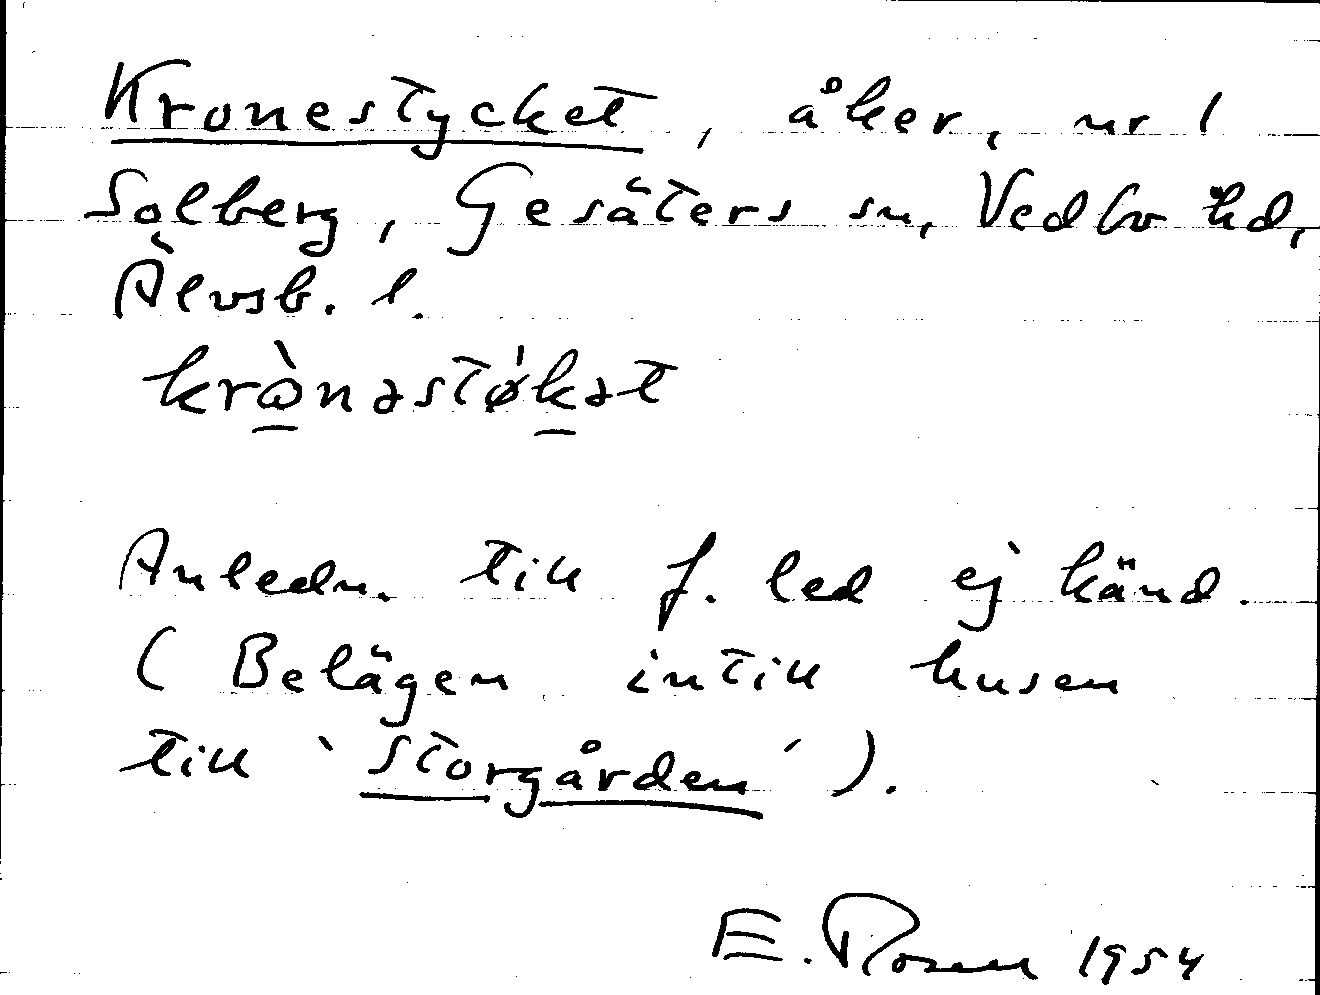 Kronestycket, åker, nr 1
Solberg, Gesäters sn, Vedbo hd,
Älvsb. l.
krὼnəstø̍kət
Anledn. till f. led ej känd.
(Belägen intill husen
till 'Storgården').
E. Rosen 1954